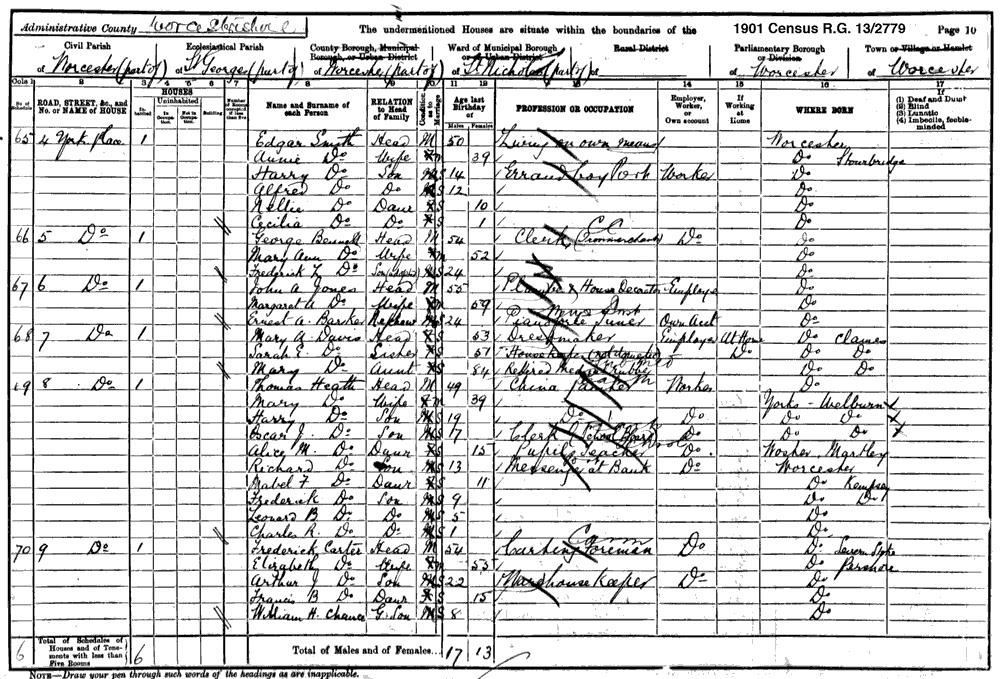 Administrative County Worcestershire The undermentioned Houses are situate within the boundaries of the 1901 Census R.G. 13/2779 Page 10
Civil Parish Ecclesiastical Parish County Borough, Municipal Borough, or Urban District Ward of Municipal Borough or Urban District Rural District Parliamentary Borough or Division Town or Village or Hamlet
of Worcester (part of) of St Georges (part of) of Worcester (part of) of St Nicholas (part of) of of Worcester of Worcester
Cols 1 2 3 4 5 6 7 8 9 10 11 12 13 14 15 16 17
No. of Schedule ROAD, STREET, &c., and No. or NAME of HOUSE HOUSES In-habited Uninhabited In Occupation Not in Occupation Building Name and Surname of each Person RELATION to Head of Family Condition as to Marriage Age last Birthday of Males Females PROFESSION OR OCCUPATION Employer, Worker, or Own account If Working at Home WHERE BORN (1) Deaf and Dumb (2) Blind (3) Lunatic (4) Imbecile, feeble-minded
65 4 York Place 1 Edgar Smith Head M 50 Living on own means Worcester
Annie Do Wife M 39 Do Stourbridge
Harry Do Son S 14 Errand boy Worker Do
Alfred Do Do S 12 Do
Nellie Do Daur S 10 Do
Cecilia Do Do S 1 Do
66 5 Do 1 George Bennett Head M 54 Clerk Do Do
Mary Ann Do Wife M 52 Do
Frederick Do Son S 24 Do
67 6 Do 1 John A Jones Head M 55 Plumber & House Decorator Employer Do
Margaret A Do Wife M 59 Do
Ernest A. Barker Nephew S 24 Pianoforte Tuner Own Acct Do
68 7 Do 1 Mary A Davis Head S 53 Dressmaker Employer At Home Do Claines
Sarah E. Do Sister S 51 Housekeeper (not domestic) Do Do Do
Mary Do Aunt S 84 Retired Do Do
69 8 Do 1 Thomas Heath Head M 49 China Painter Worker Do
Mary Do Wife M 39 Yorks - Welburn
Harry Do Son S 19 Do Do Do Do
Oscar J. Do Son S 17 Clerk (School Board) Do Do Do
Alice M. Do Daur S 15 Pupil Teacher Do Worcster, Martley
Richard Do Son S 13 Messenger at Bank Do Worcester
Mabel F Do Daur S 11 Do Kempsey
Frederick Do Son S 9 Do Do
Leonard B Do Do S 5 Do
Charles R. Do Do S 1 Do
70 9 Do 1 Frederick Carter Head M 54 Carting Foreman Do Do Severn Stoke
Elizabeth Do Wife M 55 Do Pershore
Arthur J Do Son S 22 Warehouse Keeper Do Do
Francis B Do Daur S 15 Do
William H. Chance G. Son S 8 Do
6 Total of Schedules of Houses and of Tenements with less than Five Rooms 6 Total of Males and of Females... 17 13
NOTE—Draw your pen through such words of the headings as are inapplicable.